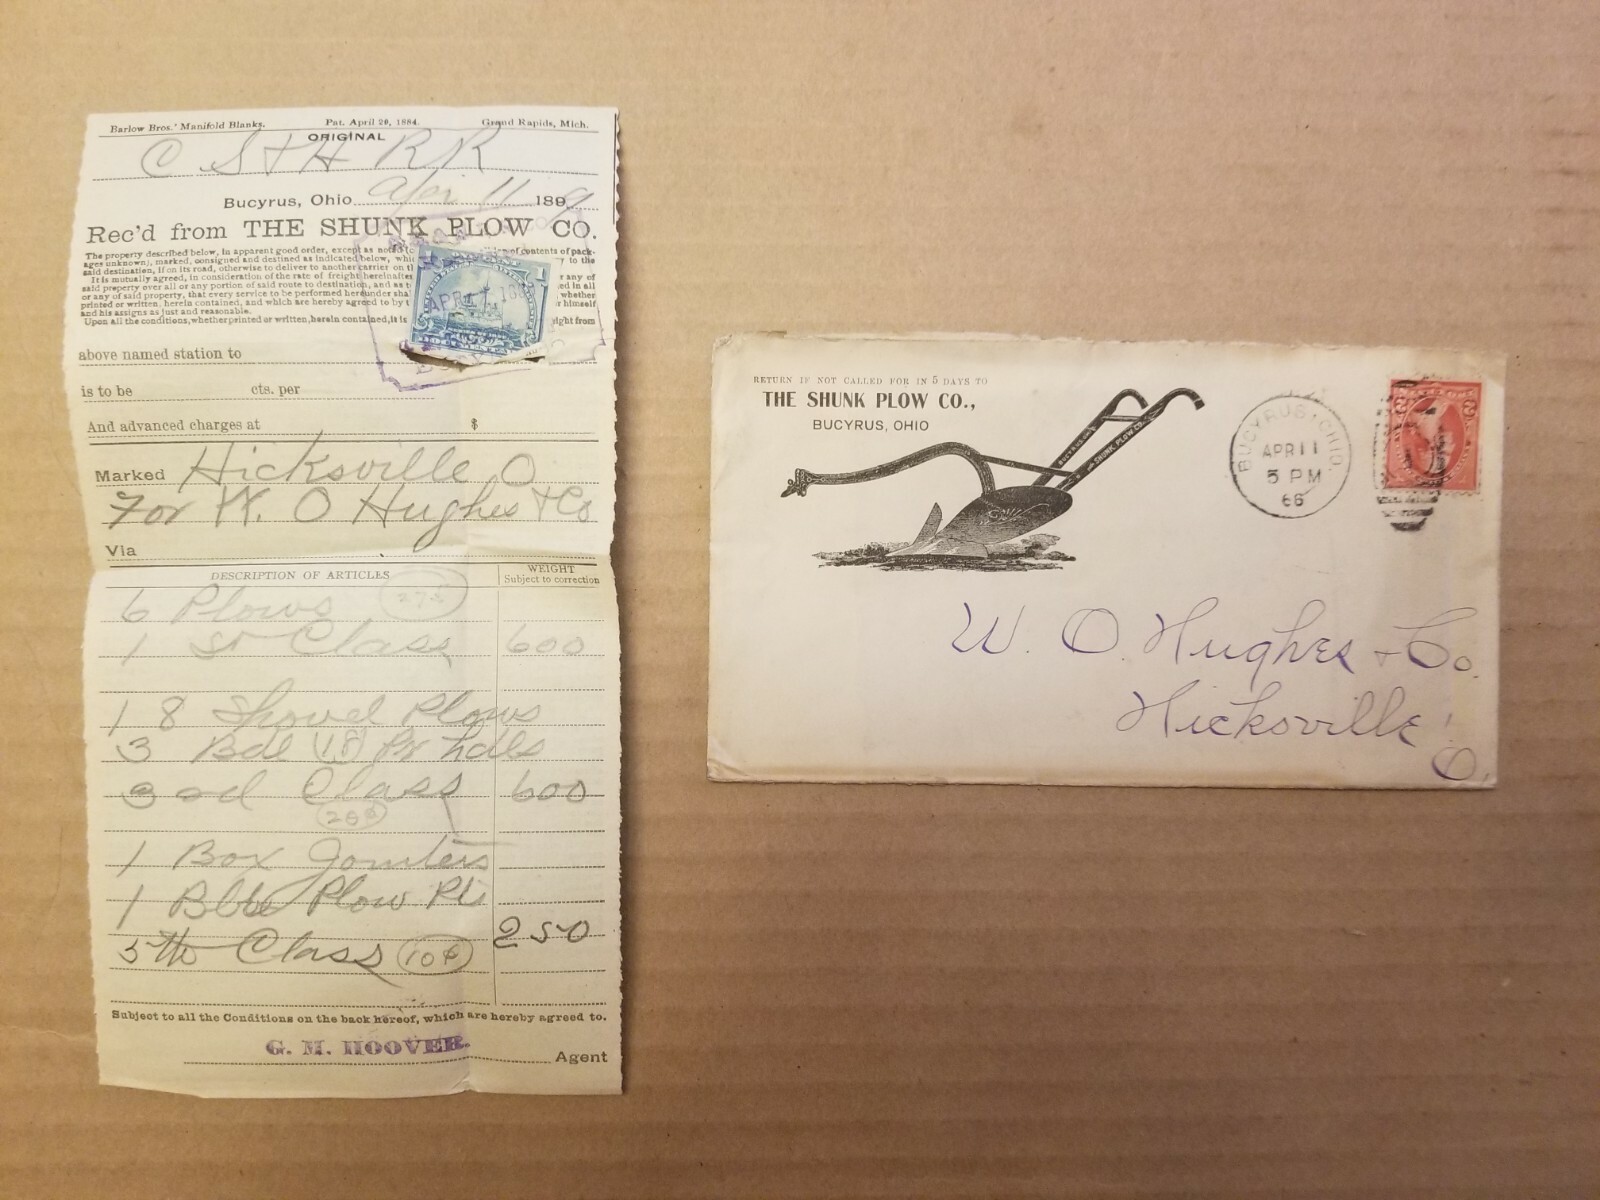 Barlow Bros.' Manifold Blanks. Pat. April 29, 1884. Grand Rapids, Mich.
ORIGINAL
C S & H RR
Bucyrus, Ohio Apr 11 1899
Rec'd from THE SHUNK PLOW CO.
The property described below, in apparent good order, except as noted of contents of pack-
ages unknown), marked, consigned and destined as indicated below, whic y to the
said destination, if on its road, otherwise to deliver to another carrier on th
It is mutually agreed, in consideration of the rate of freight hereinafter or any of
said property over all or any portion of said route to destination, and as t ed in all
or any of said property, that every service to be performed hereunder sha whether
printed or written, herein contained, and which are hereby agreed to by t r himself
and his assigns as just and reasonable.
Upon all the conditions, whether printed or written, herein contained, it is eight from
APR 1899
DOCUMENTARY
above named station to
is to be cts. per
And advanced charges at $
Marked Hicksville O
For W. O Hughes & Co
Via
DESCRIPTION OF ARTICLES WEIGHT
Subject to correction
6 Plows
1 st Class 600
18 Shovel Plows
3 Bdl
3 rd Class 600
1 Box Jointers
1 Bbl Plow Pts
5th Class 10¢ 250
Subject to all the Conditions on the back hereof, which are hereby agreed to.
G. M. HOOVER. Agent
RETURN IF NOT CALLED FOR IN 5 DAYS TO
THE SHUNK PLOW CO.,
BUCYRUS, OHIO
BUCYRUS OHIO
SHUNK PLOW CO.
BUCYRUS, OHIO.
APR 11
5 PM
66
2 2
W. O. Hughes & Co.
Hicksville
O.